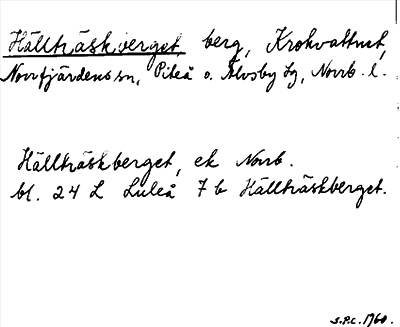 Hällträskberget, berg, Krokvattnet,
Norrfjärdens sn, Piteå o. Älvsby tg, Norrb. l.
Hällträskberget, ek Norrb.
bl. 24 L Luleå 7 b Hällträskberget.
S.P.C. 1960.